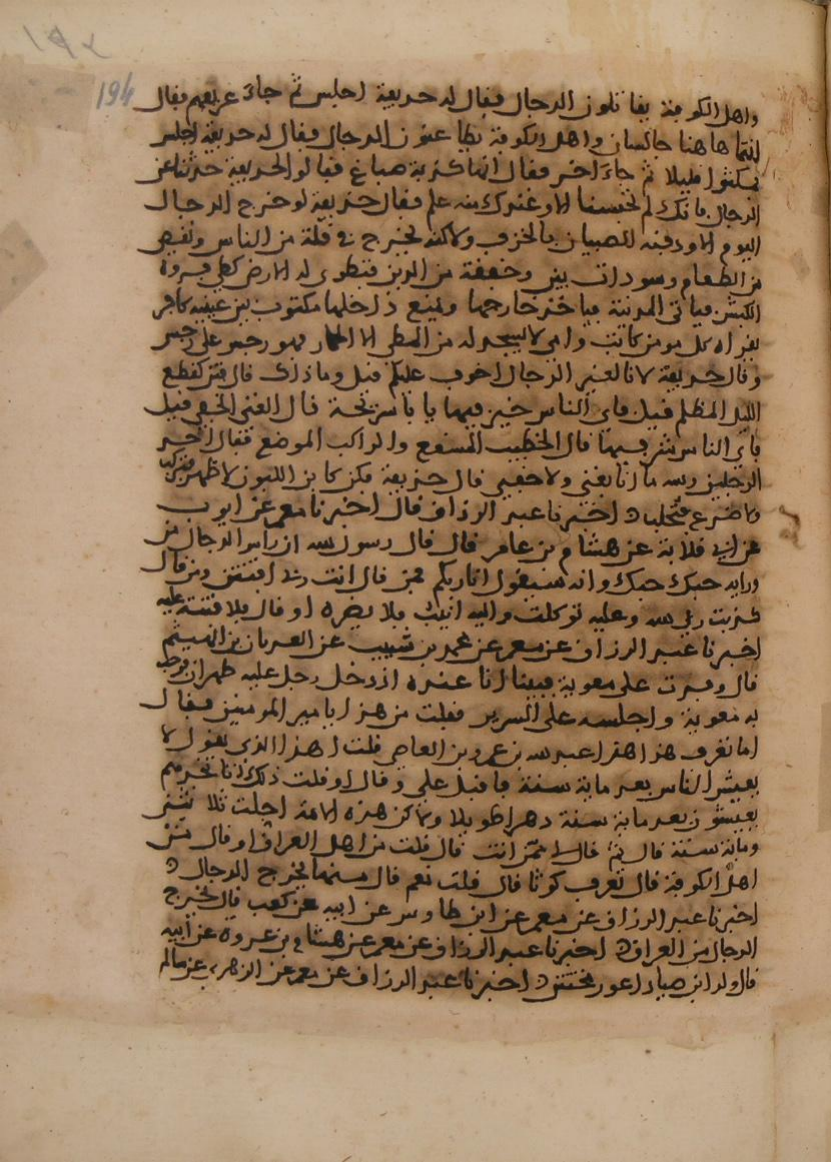 194
واهل الكوفة يقاتلون الدجال فقال له حذيفة اجلس ثم جاء عريفهم فقال
انتما هاهنا جالسان واهل الكوفة يطاعنون الدجال فقال له حذيفة اجلس
فمكثوا قليلا ثم جاء اخر فقال انها كذبة صباغ فقالوا لحذيفة حدثنا عن
الدجال فانك لم تحبسنا الا وعندك منه علم فقال حذيفة لو خرج الدجال
اليوم الا ودفنه الصبيان بالخزف ولاكنه يخرج في قلة من الناس ونقص
من الطعام وسوء ذات بين وخفقة من الدين فتطوى له الارض كطي فروة
الكبش فياتي المدينة فياخذ خارجها ويمنع داخلها مكتوب بين عينيه كافر
يقراه كل مومن كاتب وامي لا يسخر له من المطي الا الحمار فهو رجس على رجس
وقال حذيفة لانا لغير الدجال اخوف عليكم قيل وما ذاك قال فتن كقطع
الليل المظلم قيل فاي الناس خير فيها يا با سريحة قال الغني الخفي قيل
فاي الناس شر فيها قال الخطيب المسقع والراكب الموضع فقال احد
الرجلين والله ما انا بغني ولا خفي قال حذيفة فكن كابن اللبون لا ظهر فتركب
ولا ضرع فتحلب اخبرنا عبد الرزاق قال اخبرنا معمر عن ايوب
عن ابي قلابة عن هشام بن عامر قال قال رسول الله ان راس الدجال من
ورايه حبك حبك وانه سيقول انا ربكم فمن قال انت ربي افتتن ومن قال
كذبت ربي الله وعليه توكلت واليه انيب فلا يضره او قال فلا فتنة عليه
اخبرنا عبد الرزاق عن معمر عن محمد بن شبيب عن العريان بن الهيثم
قال وفدت على معوية فبينا انا عنده اذ دخل رجل عليه طمران فرحب
به معوية واجلسه على السرير فقلت من هذا يا مير المومنين فقال
اما تعرف هذا هذا عبد الله بن عمرو بن العاصي قلت اهذا الذي يقول لا
يعيش الناس بعد ماية سنة فاقبل علي وقال اوقلت ذلك انا تجدهم
يعيشون بعد ماية سنة دهرا طويلا ولاكن هذه الامة اجلت ثلاثين
وماية سنة قال ثم قال لي ممن انت قال قلت من اهل العراق او قال من
اهل الكوفة قال تعرف كوثا قال قلت نعم قال منها يخرج الدجال
اخبرنا عبد الرزاق عن معمر عن ابن طاوس عن ابيه عن كعب قال يخرج
الدجال من العراق اخبرنا عبد الرزاق عن معمر عن هشام بن عروة عن ابيه
قال ولد ابن صياد اعور مختتن اخبرنا عبد الرزاق عن معمر عن الزهري عن سالم